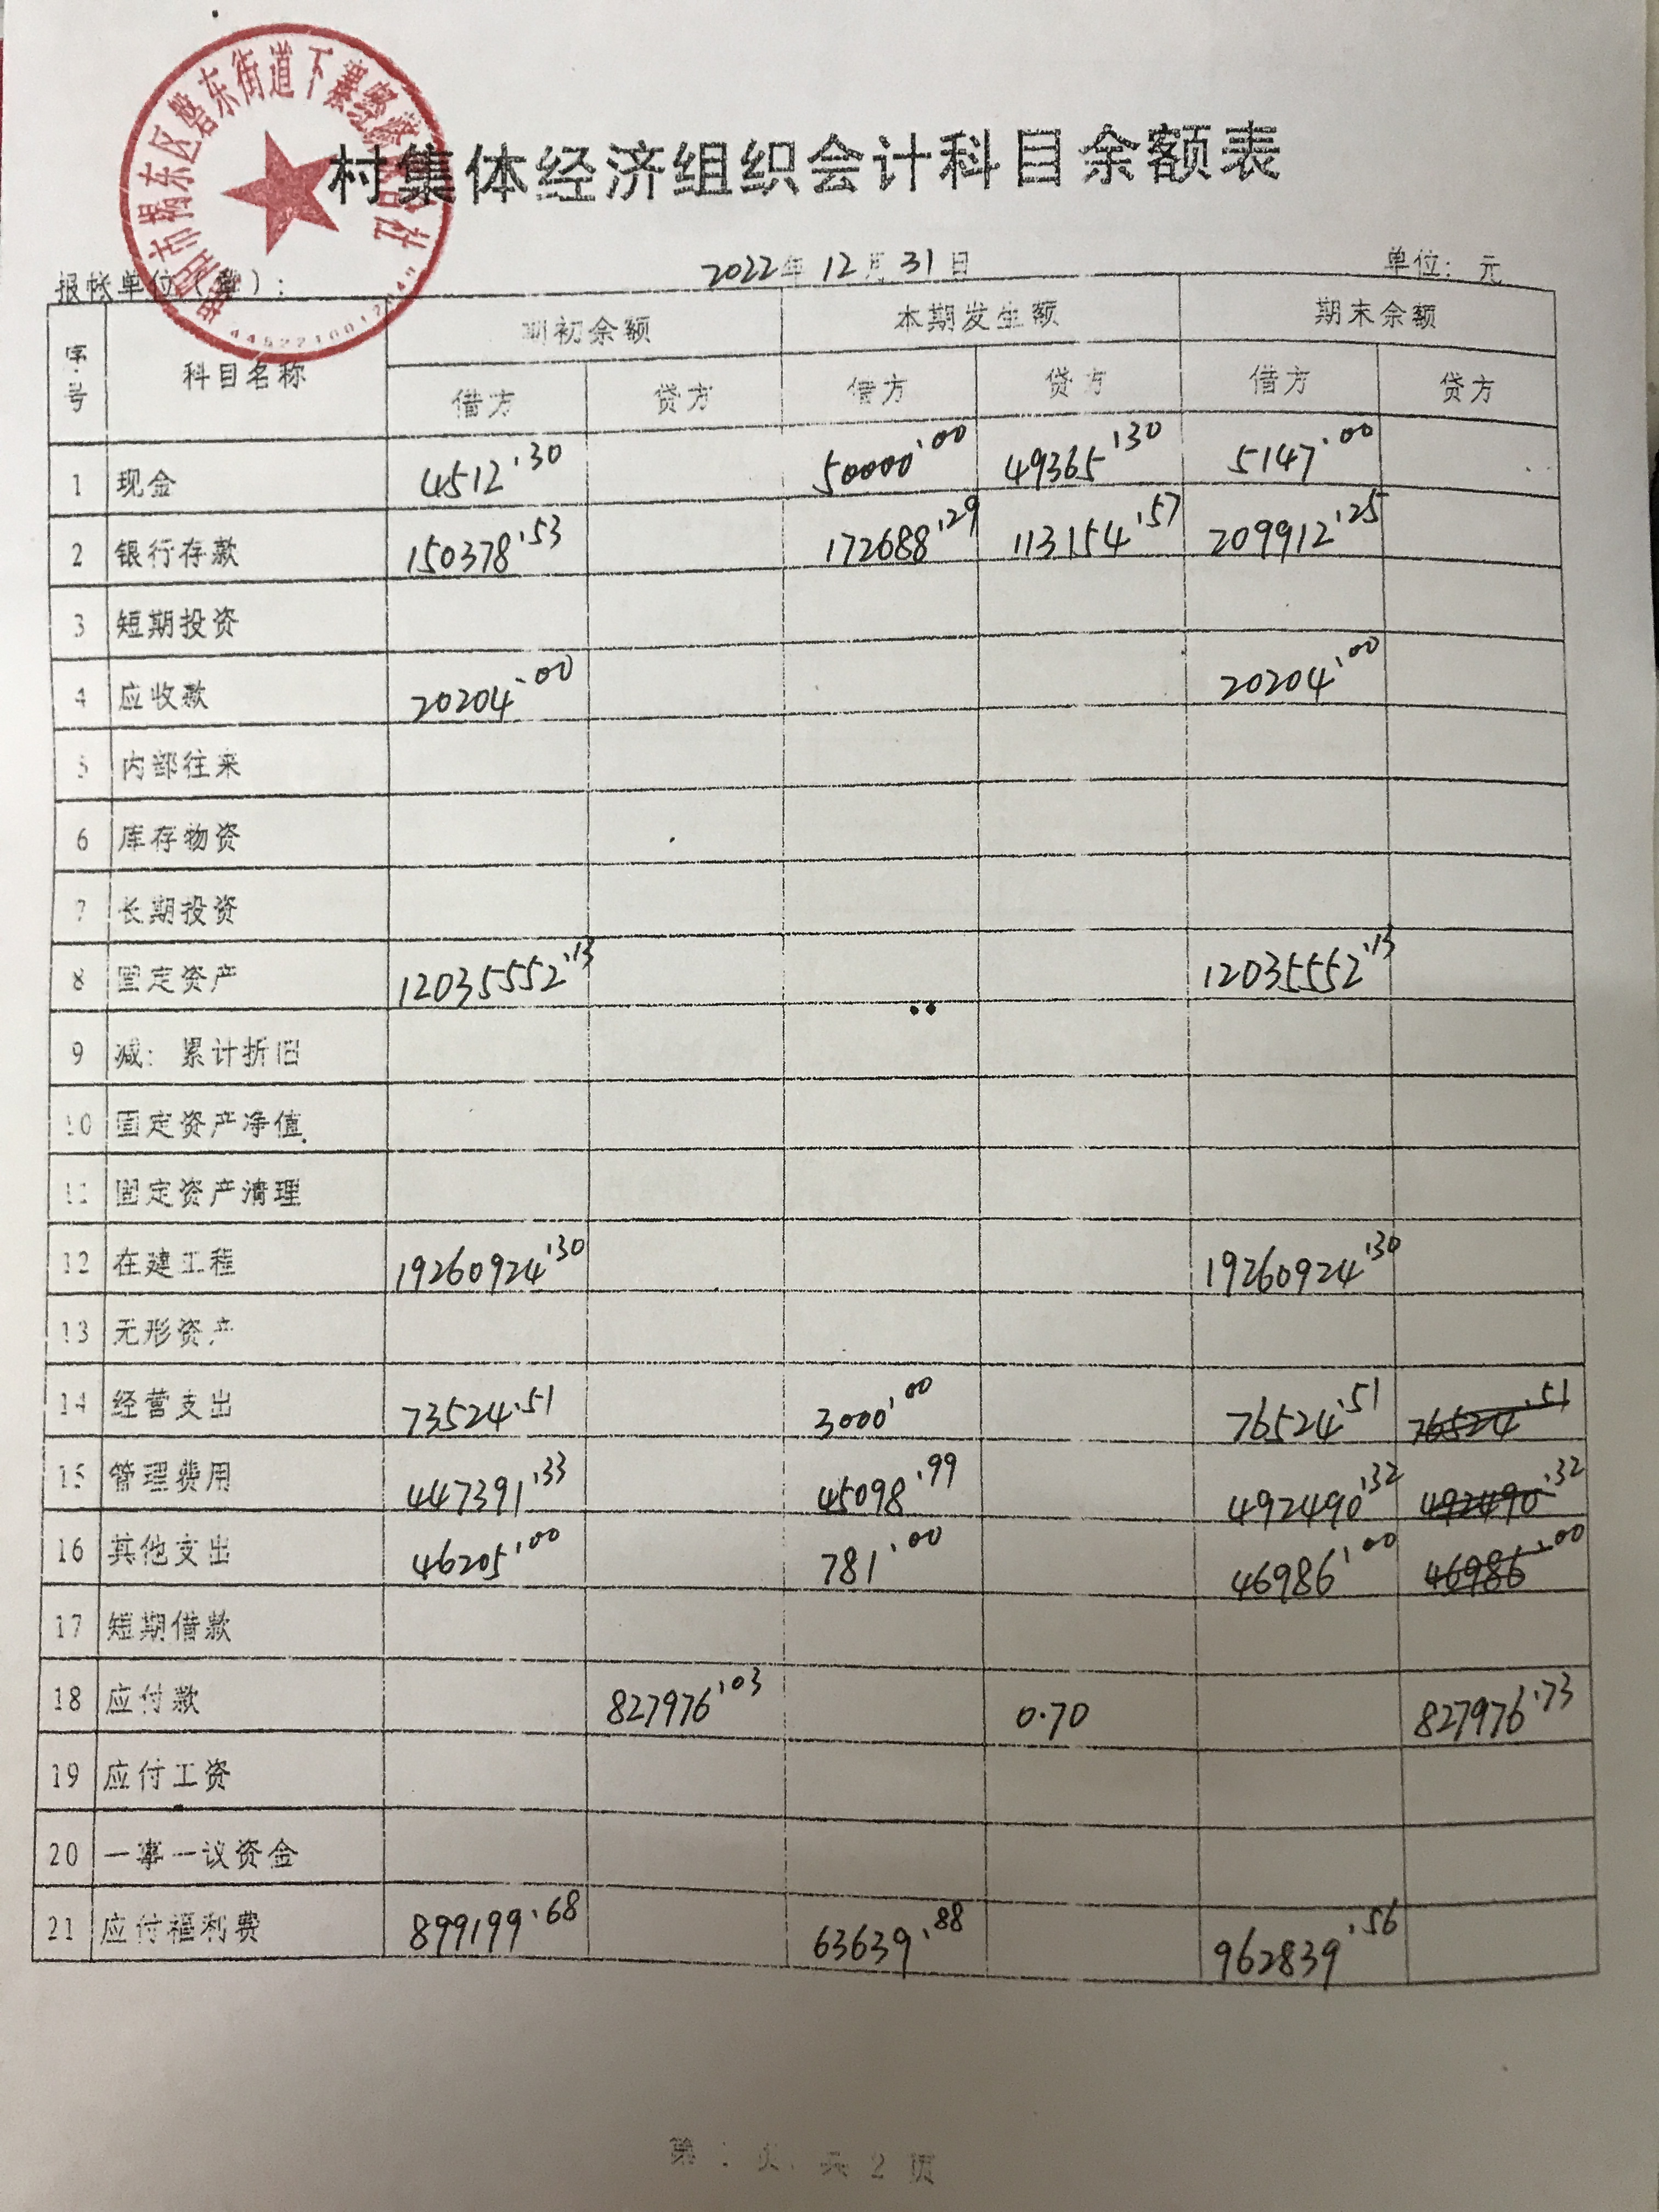 村集体经济组织会计科目余额表
揭东区磐东街道下
报帐单位（章）： 2022年12月31日 单位：元
序号 科目名称 期初余额 本期发生额 期末余额
借方 贷方 借方 贷方 借方 贷方
1 现金 4512.30 50000.00 49365.30 5147.00
2 银行存款 150378.53 172688.29 113154.57 209912.25
3 短期投资
4 应收款 20204.00 20204.00
5 内部往来
6 库存物资
7 长期投资
8 固定资产 12035552.13 12035552.13
9 减：累计折旧
10 固定资产净值
11 固定资产清理
12 在建工程 19260924.30 19260924.30
13 无形资产
14 经营支出 73524.51 3000.00 76524.51 76524.51
15 管理费用 447391.33 45098.99 492490.32 492490.32
16 其他支出 46205.00 781.00 46986.00 46986.00
17 短期借款
18 应付款 827976.03 0.70 827976.73
19 应付工资
20 一事一议资金
21 应付福利费 899199.68 63639.88 962839.56
第 页，共 2 页